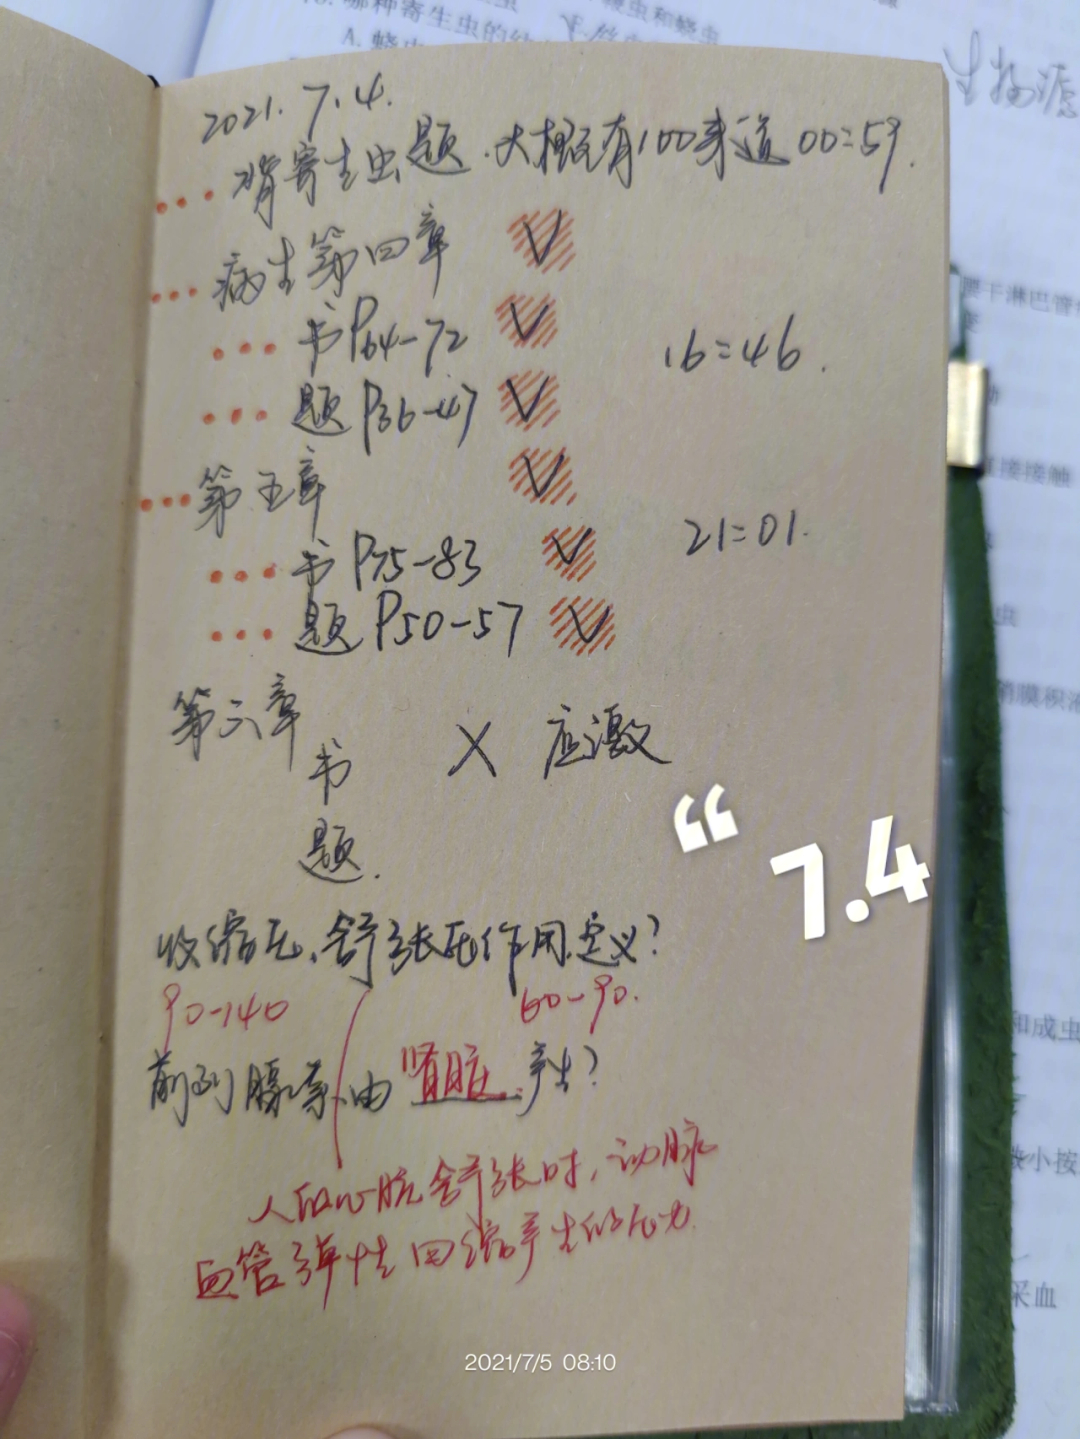 哪种寄生虫的
虫和蛲虫
A. 蛲虫
生物
2021. 7.4.
背寄生虫题.大概有100来道 00:59.
病生第四章 V
书P64-72 V
16:46.
题P36-47 V
第五章 V
书P75-83 V
21:01.
题P50-57 V
第六章
书 X 应激
题.
“ 7.4
收缩压、舒张压作用定义?
90-140 60-90.
前列腺素由肾脏产生?
人的心脏舒张时,动脉
血管弹性回缩产生的压力.
2021/7/5 08:10
干淋巴管
直接接触
虫
膜积液
和成虫
小按
采血